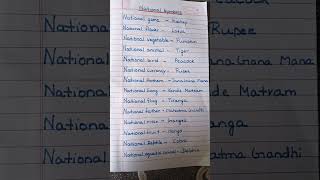 National Symbols
National game - Hockey
National flower - Lotus
National vegetable - Pumpkin
National animal - Tiger
National bird - Peacock
National currency - Rupee
National Anthem - Jana Gana Mana
National Song - Vande Matram
National flag - Tiranga
National father - Mahatma Gandhi
National river - Ganga
National fruit - Mango
National Reptile - Cobra
National aquatic animal - Dolphin